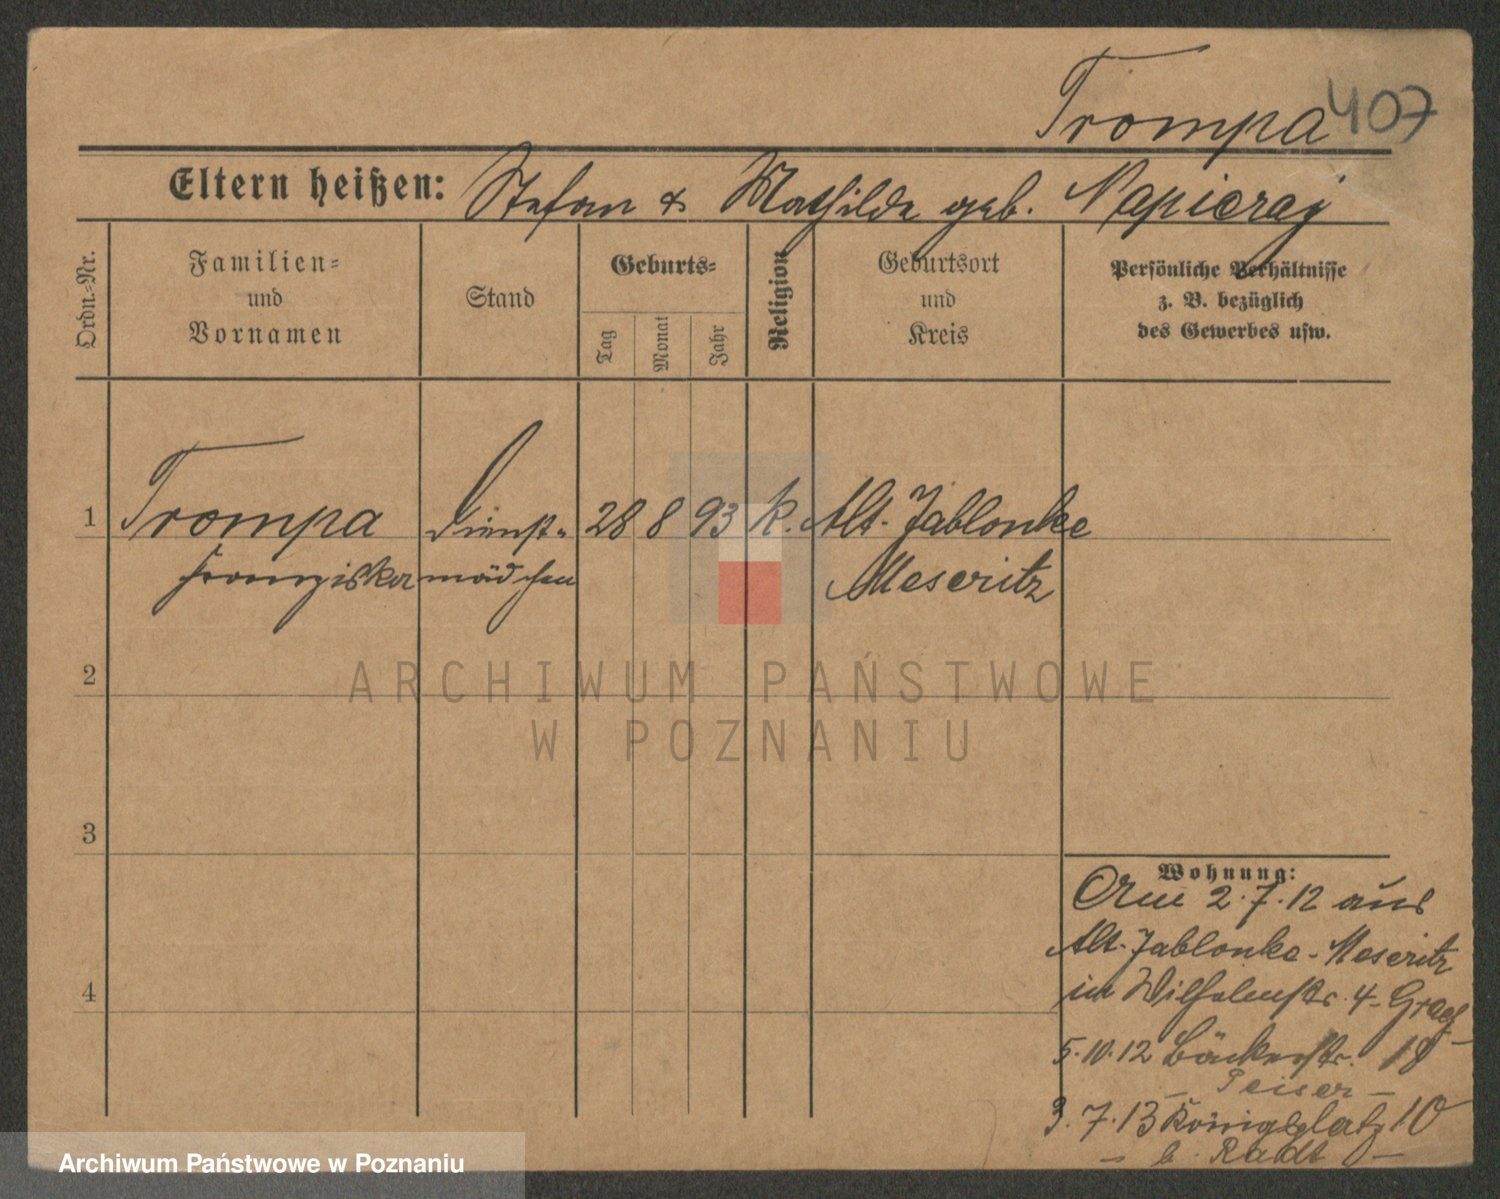 Trompa 407
Eltern heißen: Stefan & Mathilde geb. Napieraj
Ordn.-Nr.
Familien-
und
Vornamen
Stand
Geburts-
Tag
Monat
Jahr
Religion
Geburtsort
und
Kreis
Persönliche Verhältnisse
z. B. bezüglich
des Gewerbes usw.
1 Trompa Dienst- 28 8 93 k. Alt-Jablonke
Franziska mädchen Meseritz
2
3
4
Wohnung:
Am 2.7.12 aus
Alt-Jablonke-Meseritz
in Wilhelmstr. 4-Graef-
5.10.12 Bäckerstr. 18
- Peiser -
3.7.13 Königsplatz 10
- b. Radt -
ARCHIWUM PAŃSTWOWE
W POZNANIU
Archiwum Państwowe w Poznaniu